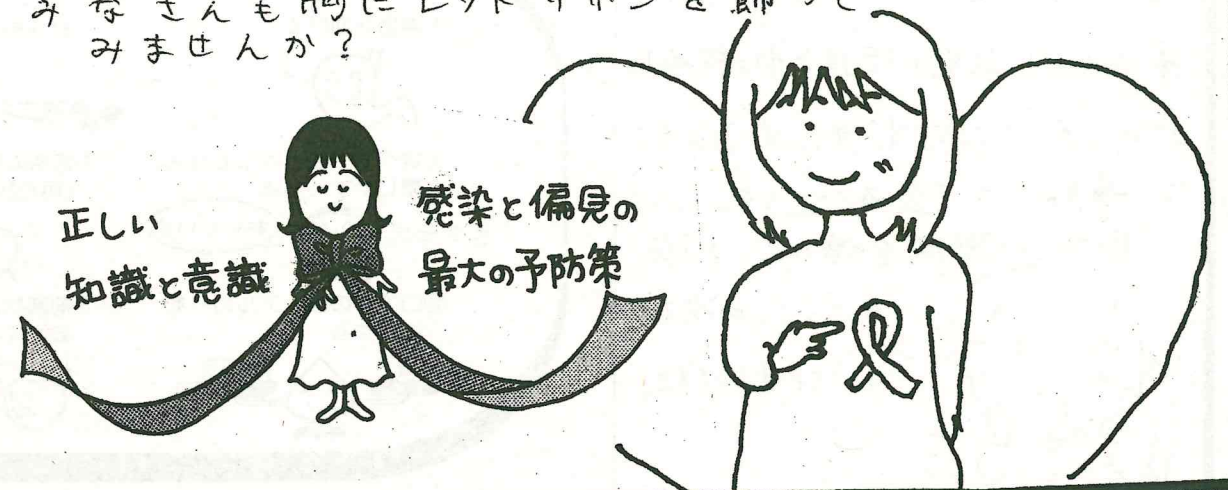 みなさんも胸にレッドリボンを飾って
みませんか?
正しい
知識と意識
感染と偏見の
最大の予防策